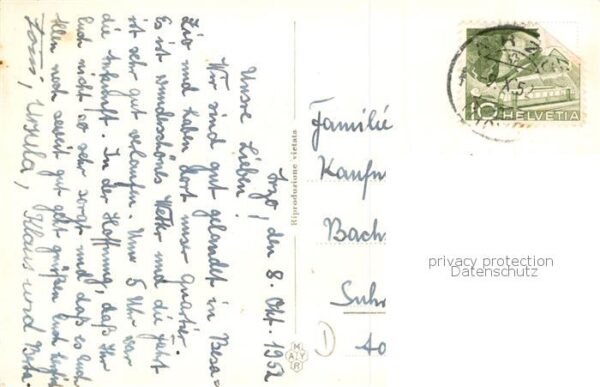 Irzo, den 8. Okt. 1952
Unsre Lieben!
Wir sind gut gelandet in Besa-
zio und haben dort unser Quartier.
Es ist wunderschönes Wetter und die Fahrt
ist sehr gut verlaufen. Um 5 Uhr war
die Ankunft. In der Hoffnung, daß Ihr
Euch nicht so sehr sorgt und daß es Euch
allen noch soweit gut geht grüßen Euch
Louis, Ursula, Klaus und
Riproduzione vietata
MAYR
Familie
Kaufm
Bach
Suhr
1
HELVETIA
10
X.52
privacy protection
Datenschutz